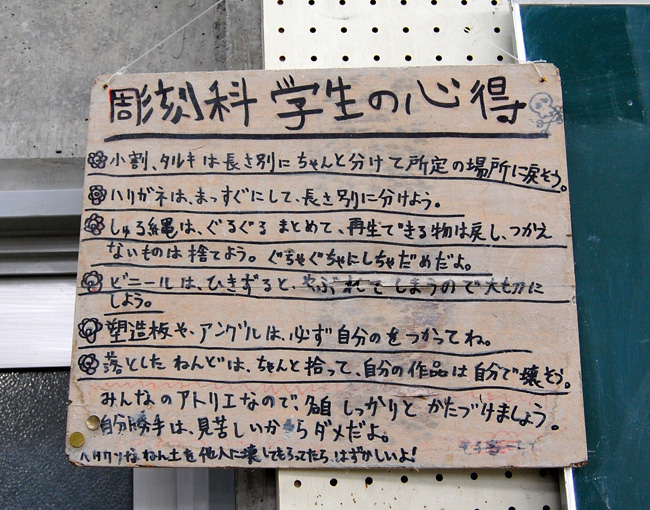 彫刻科 学生の心得
小割、タルキは長さ別にちゃんと分けて所定の場所に戻そう。
ハリガネは、まっすぐにして、長さ別に分けよう。
しゅろ縄は、ぐるぐるまとめて、再生できる物は戻し、つかえ
ないものは捨てよう。ぐちゃぐちゃにしちゃだめだよ。
ビニールは、ひきずると、やぶれてしまうので大切に
しよう。
塑造板や、アングルは、必ず自分のをつかってね。
落としたねんどは、ちゃんと拾って、自分の作品は自分で壊そう。
みんなのアトリエなので、各自しっかりとかたづけましょう。
自分勝手は、見苦しいからダメだよ。
ヘタクソなねん土を他人に壊してもらってたら、はずかしいよ!